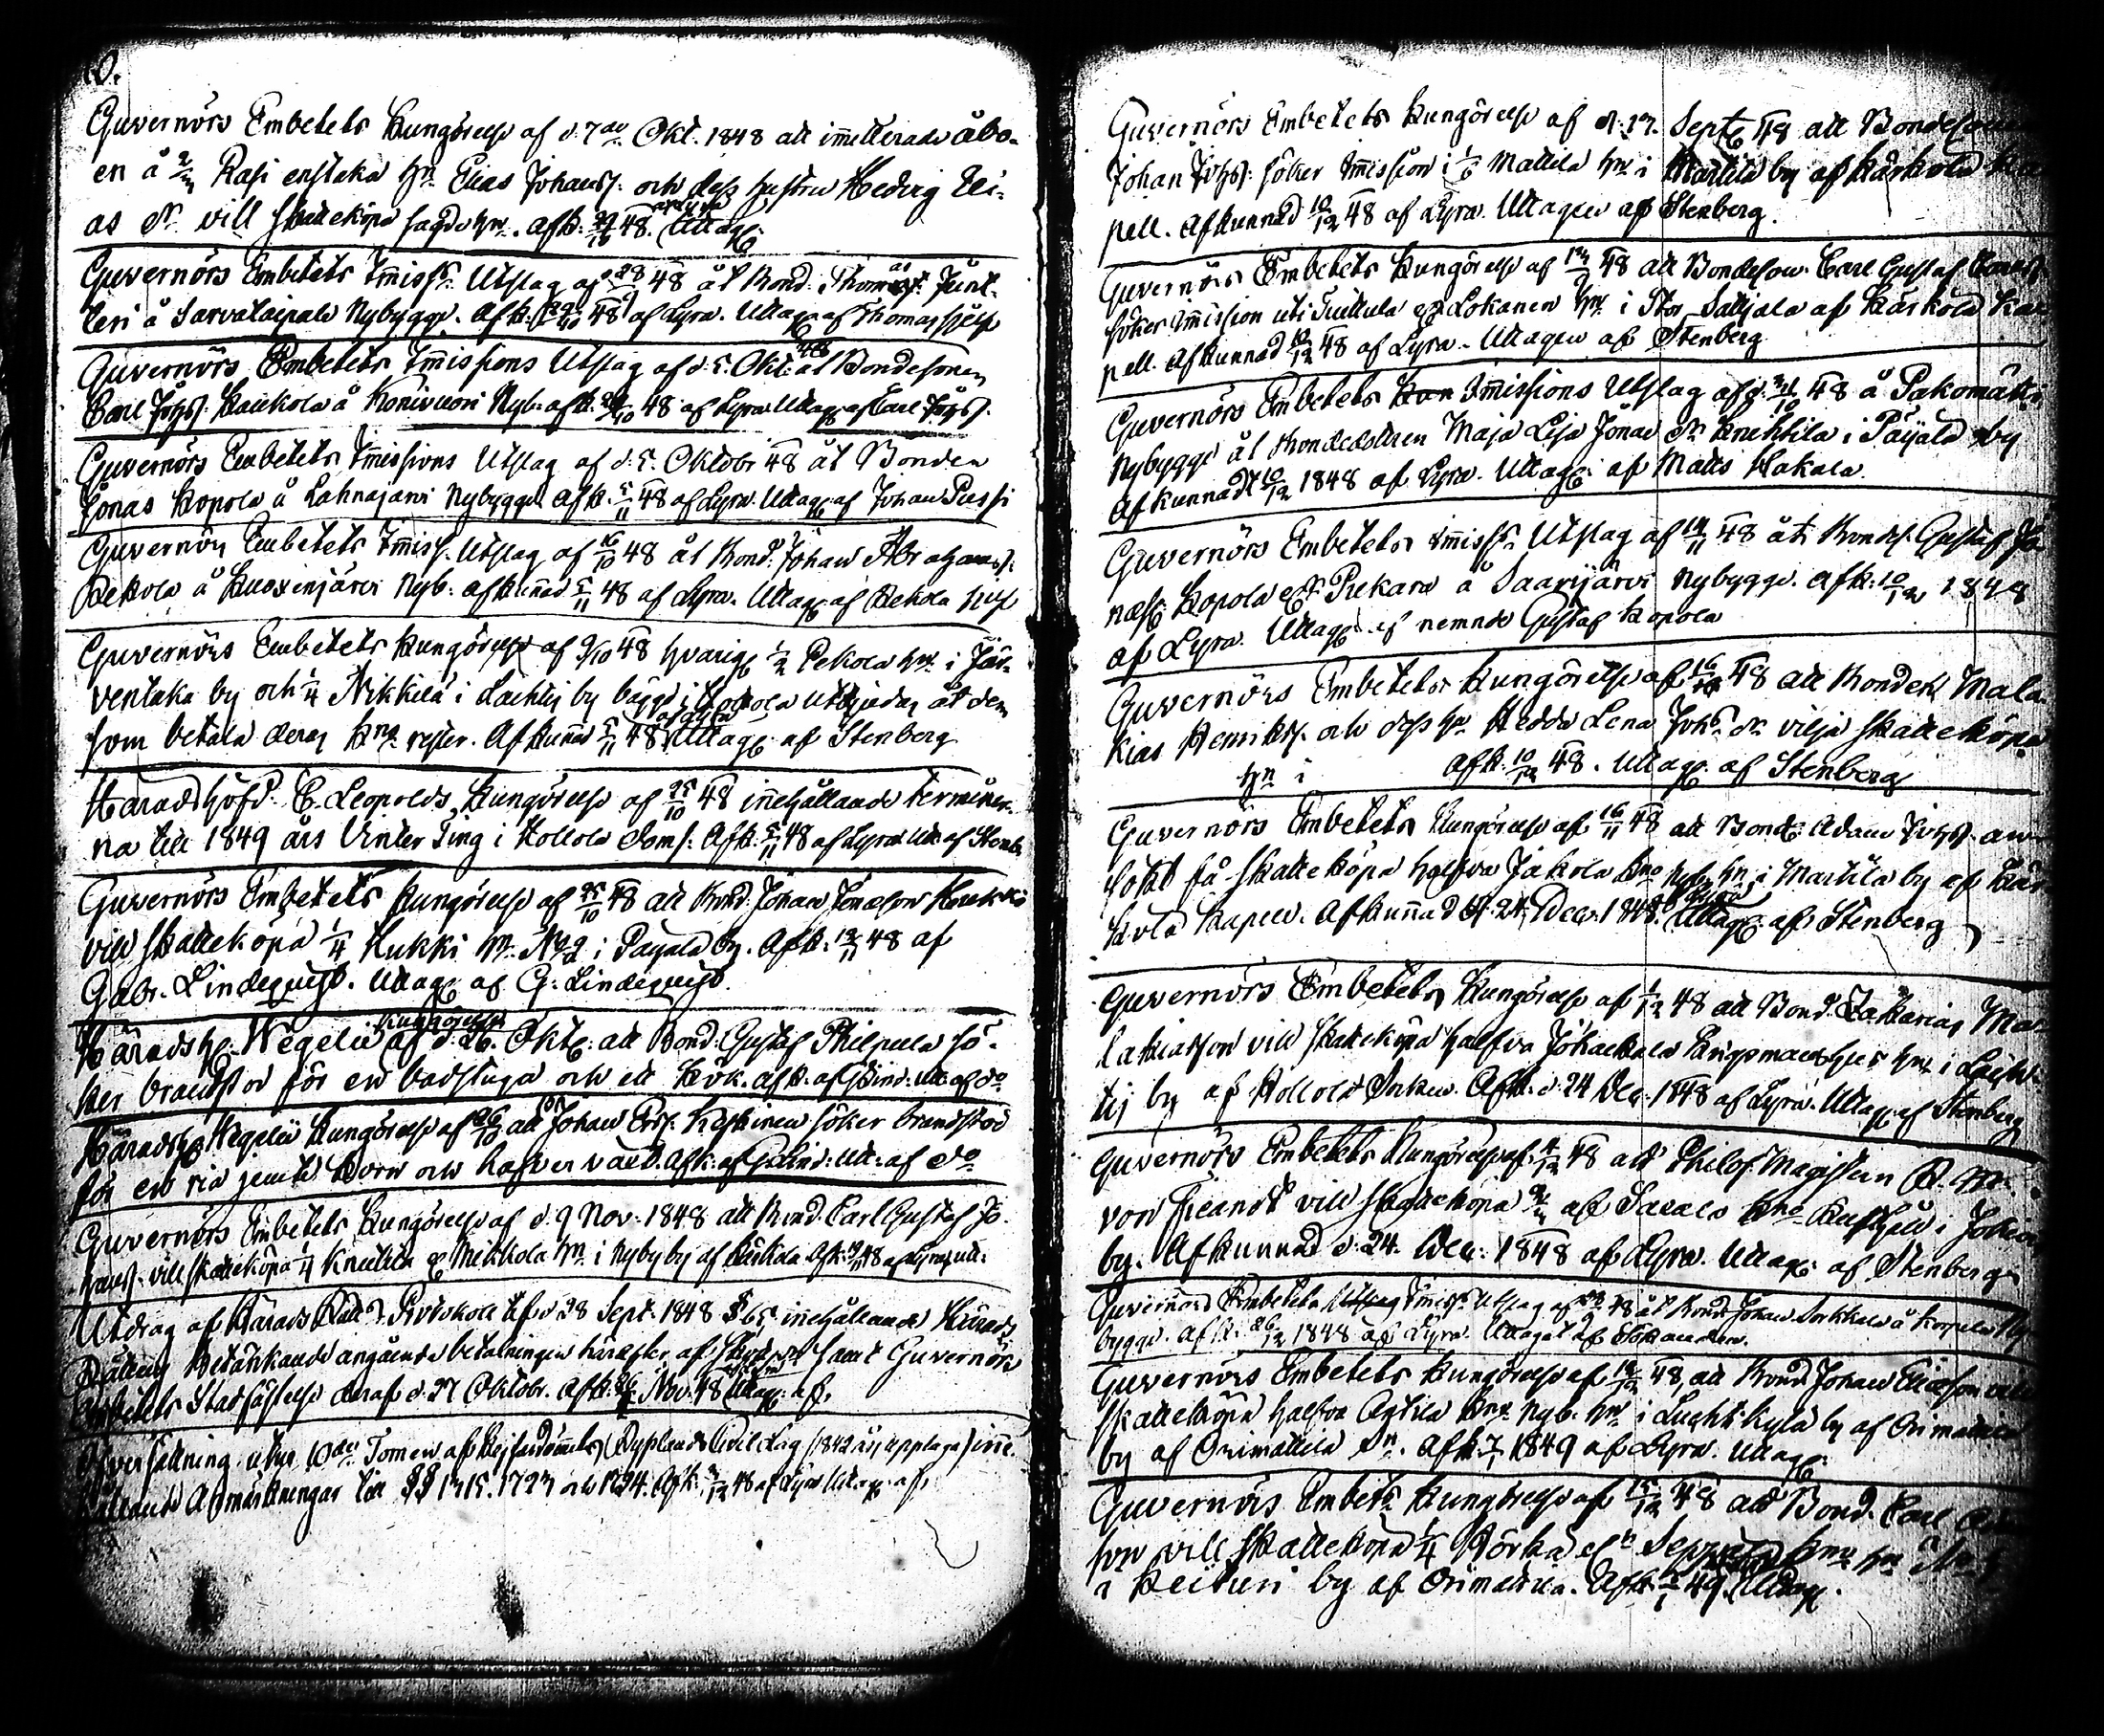 Guvernörs Embetets Kungörelse af d. 7de Okt. 1848 att immitterade åbo-
en å 2/3 Rasi enstaka hn Elias Johanss. och dess hustru Hedvig Eli-
as dr. vill skatteköpa sagde hn. Afk. 48. af Lyra Uttag.
Guvernörs Embetets Immiss. Utslag af 28 48 åt Bond. Thomas Junt-
leri å Sarvalaipale Nybygge. Afk. 29/10 48 af Lyra. Uttag. af Thomas sjelf
Guvernörs Embetets Immissions Utslag af d. 5. Okt. 48 åt Bondesonen
Carl Johss. Kaukola å Konivuori Nyb. afk. 29/10 48 af Lyra Uttag. af Carl Johss.
Guvernörs Embetets Immissions Utslag af d. 5. Oktobr 48 åt Bonden
Jonas Kopola å Lahnajärvi Nybygge. Afk. 5/11 48 af Lyra. Uttag. af Johan Pussi
Guvernörs Embetets Immiss. Utslag af 16/10 48 åt Bond. Johan Abrahamss.
Pekola å Kuoxenjärvi Nyb. afkunnad 5/11 48 af Lyra. Uttag. af Pekola sjelf
Guvernörs Embetets Kungörelse af 9/10 48 hvarig. 1/2 Pekola hn. i Jär-
ventaka by och 1/4 Nikkilä i Lachtis by bägge i Hollola utbjudas åt dem
som betala deras Kno rester. Afkunnad 5/11 48 af Lyra Uttag. af Stenberg
Häradshöfd. C. Leopolds Kungörelse af 25/10 48 innehållande terminer-
na till 1849 års Vinter Ting i Hollola Doms. Afk. 5/11 48 af Lyra Utt. af Stenb.
Guvernörs Embetets Kungörelse af 25/10 48 att Bond. Johan Jonasson Hukki
vill skatteköpa 1/4 Hukki hn. No 2 i Paijala by. Afk. 12/11 48 af
Gabr. Lindequist. Uttag. af G. Lindequist.
Häradsh. Wegelii Kungörelse af d. 26. Okt. att Bond. Gustaf Philpula sö-
ker brandstod för en badstuga och ett Kök. afk. af Lind. utt. af do
Häradsh. Wegelii Kungörelse af 26/10 att Johan Ers. Keskinen söker brandstod
för en ria jemte Korn och hafver vård. Afk. af G. Lind. Utt. af do
Guvernörs Embetets Kungörelse af d. 9 Nov. 1848 att Bond. Carl Gustaf Jo-
hanss. vill skatteköpa 1/4 Knuttila & Mikkola hn. i Nyby by af Kärkölä. Afk. 48 af Lyra, utt.
Utdrag af Härads Rätts Protokoll af d. 28 Sept. 1848 § 65 innehållande Härads
Rättens Betänkande angående betalningen härefter af samt Guvernörs
Embetets Stadfästelse deraf d. 27 Oktobr. Afk. 26 Nov. 48 Uttag. af
Öfversättning utur 10de Tomen af Civil Lag (1842 års upplaga) inne-
hållande Anmärkningar till §§ 1715. 1723 och 1724. Afk. 3/12 48 af Lyra Uttag. af
Guvernörs Embetets Kungörelse af d. 17. Sept. 48 att Bondesonen
Johan Johss. söker Immission i 1/6 Mattila hn. i Marttila by af Kärkölä Ka-
pell. Afkunnad 10/12 48 af Lyra. Uttagen af Stenberg.
Guvernörs Embetets Kungörelse af 48 att Bondeson Carl Gustaf
söker Immission uti Tuittula & Lokanen hn. i Stor Sattiala af Kärkölä Ka-
pell. Afkunnad 10/12 48 af Lyra. Uttagen af Stenberg
Guvernörs Embetets Kun Immissions Utslag af d. 31/10 48 å Pakomätti
Nybygge åt Bondedottren Maja Lisa Jonae dr. Knuhtila i Paijala by
Afkunnadt 10/12 1848 af Lyra. Uttag. af Matts Hakala
Guvernörs Embetets Immiss. Utslag af 14/11 48 åt Bondes. Gustaf Jo-
nass. Kopola ell. Piekara å Saarijärvi Nybygge. Afk. 10/12 1848
af Lyra. Uttag. af nemnde Gustaf Kopola
Guvernörs Embetets Kungörelse af 16 48 att Bonden Mala-
kias Henrikss. och dess hu. Hedda Lena Johs. dr. vilja skatteköpa
hn i afk. 10/12 48. Uttag. af Stenberg
Guvernörs Embetets Kungörelse af 16/11 48 att Bond. Adam Johss. an-
sökt få skatteköpa halfva Jakola Kno Nyb. hn. i Marttila by af Kär-
kölä Kapell. Afkunnad d. 24. Dec. 1848. af Lyra Uttag. af Stenberg
Guvernörs Embetets Kungörelse af 1/12 48 att Bond. Zakarias Ma-
lakiasson vill skatteköpa halfva Jöhackala Länsmans hn. i Lach-
tis by af Hollola Socken. Afk. d. 24 Dec. 1848 af Lyra. Uttag. af Stenberg
Guvernörs Embetets Kungörelse af 4/12 48 att Philos. Magistern
von Fieandt vill skatteköpa af Kno Rusthåll i
by. Afkunnad d. 24. Dec. 1848 af Lyra. Uttag. af Stenberg
Guvernörs Embetets Utslag Immiss. Utslag af 48 åt Bond. Johan Sorkkela å Korpela Ny-
bygge. Afk. 26/12 1848 af Lyra. Uttaget af Sökanden.
Guvernörs Embetets Kungörelse af 12/12 48, att Bond. Johan Eliasson vill
skatteköpa halfva Anttila Kno Nyb. hn. i Luchtikylä by af Orimattila
by af Orimattila Sn. Afk. 7/1 1849 af Lyra. Uttag.
Guvernörs Embets Kungörelse af 15/12 48 att Bond. Carl
son vill skatteköpa 1/4 Körkä ell. Seppälä Kno hn
i Keituri by af Orimattila. Afk. 49. Uttag.